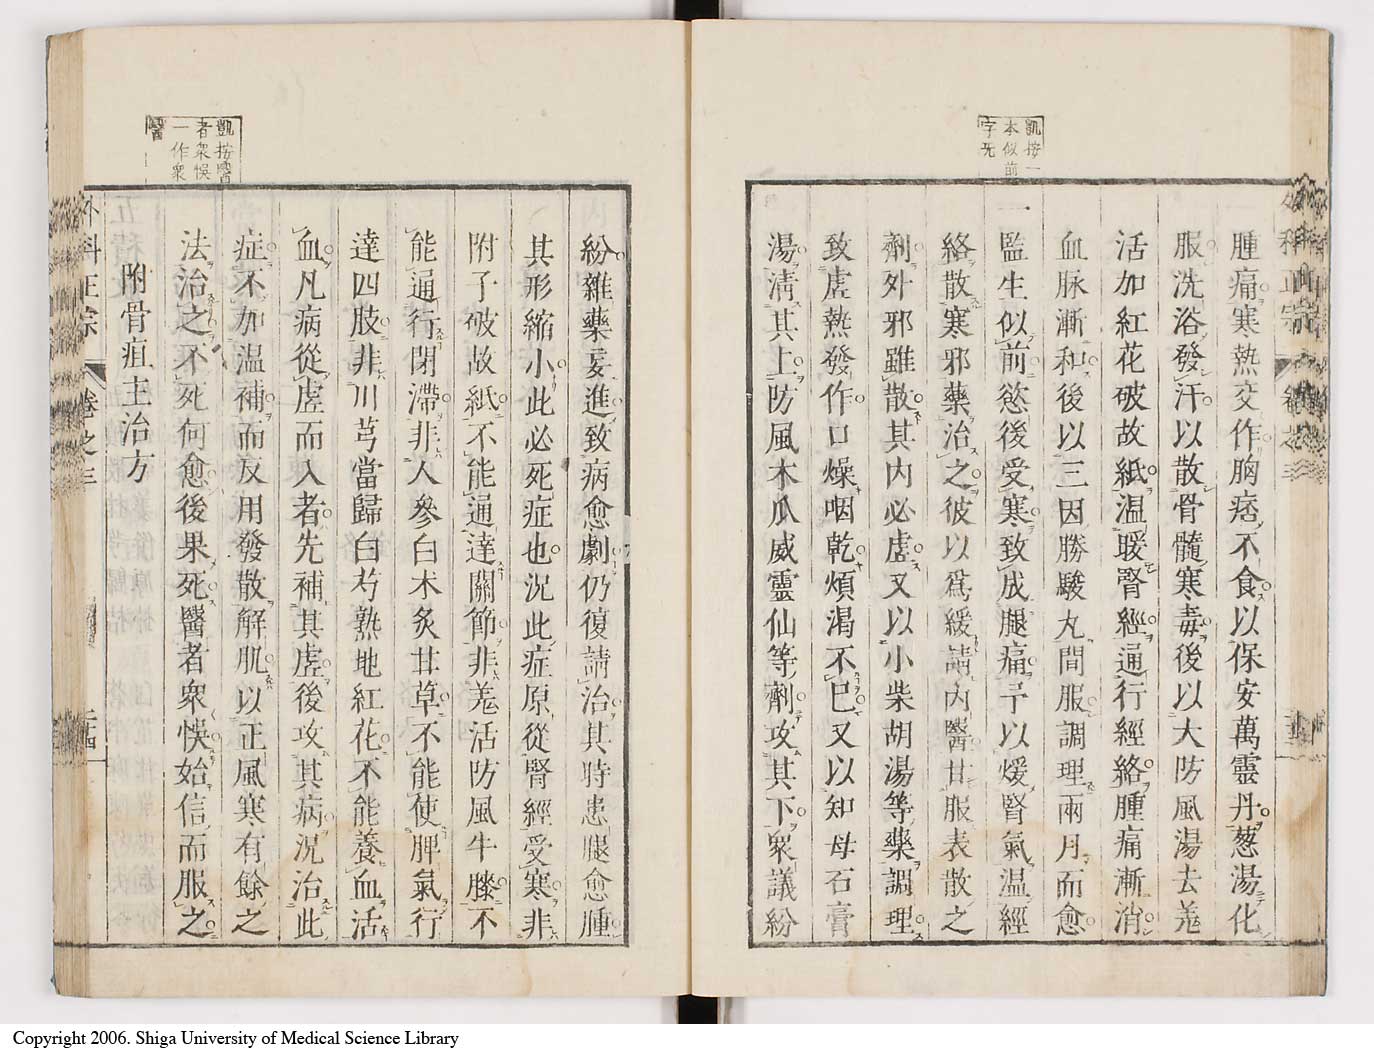 凱按一
本似前
字旡
腫痛寒熱交作胸痞不食以保安萬靈丹葱湯化
服洗浴發汗以散骨髓寒毒後以大防風湯去羗
活加紅花破故紙温暖腎經通行經絡腫痛漸消
血脉漸和後以三因勝駿丸間服調理兩月而愈
一監生似前慾後受寒致成腿痛予以煖腎氣温經
絡散寒邪藥治之彼以爲緩請内醫甘服表散之
劑外邪雖散其内必虗又以小柴胡湯等藥調理
致虗熱發作口燥咽乾煩渴不巳又以知母石膏
湯淸其上防風木瓜威靈仙等劑攻其下衆議紛
紛雜藥妄進致病愈劇仍復請治其時患腿愈腫
其形縮小此必死症也況此症原從腎經受寒非
附子破故紙不能通達關節非羗活防風牛膝不
能通行閉滯非人參白木炙甘草不能使脾氣行
達四肢非川芎當歸白芍熟地紅花不能養血活
血凡病從虗而入者先補其虗後攻其病況治此
症不加温補而反用發散解肌以正風寒有餘之
法治之不死何愈後果死醫者衆悞始信而服之
附骨疽主治方
凱按醫
者衆悞
一作衆
醫
外科正宗 卷之三 二十四
Copyright 2006. Shiga University of Medical Science Library